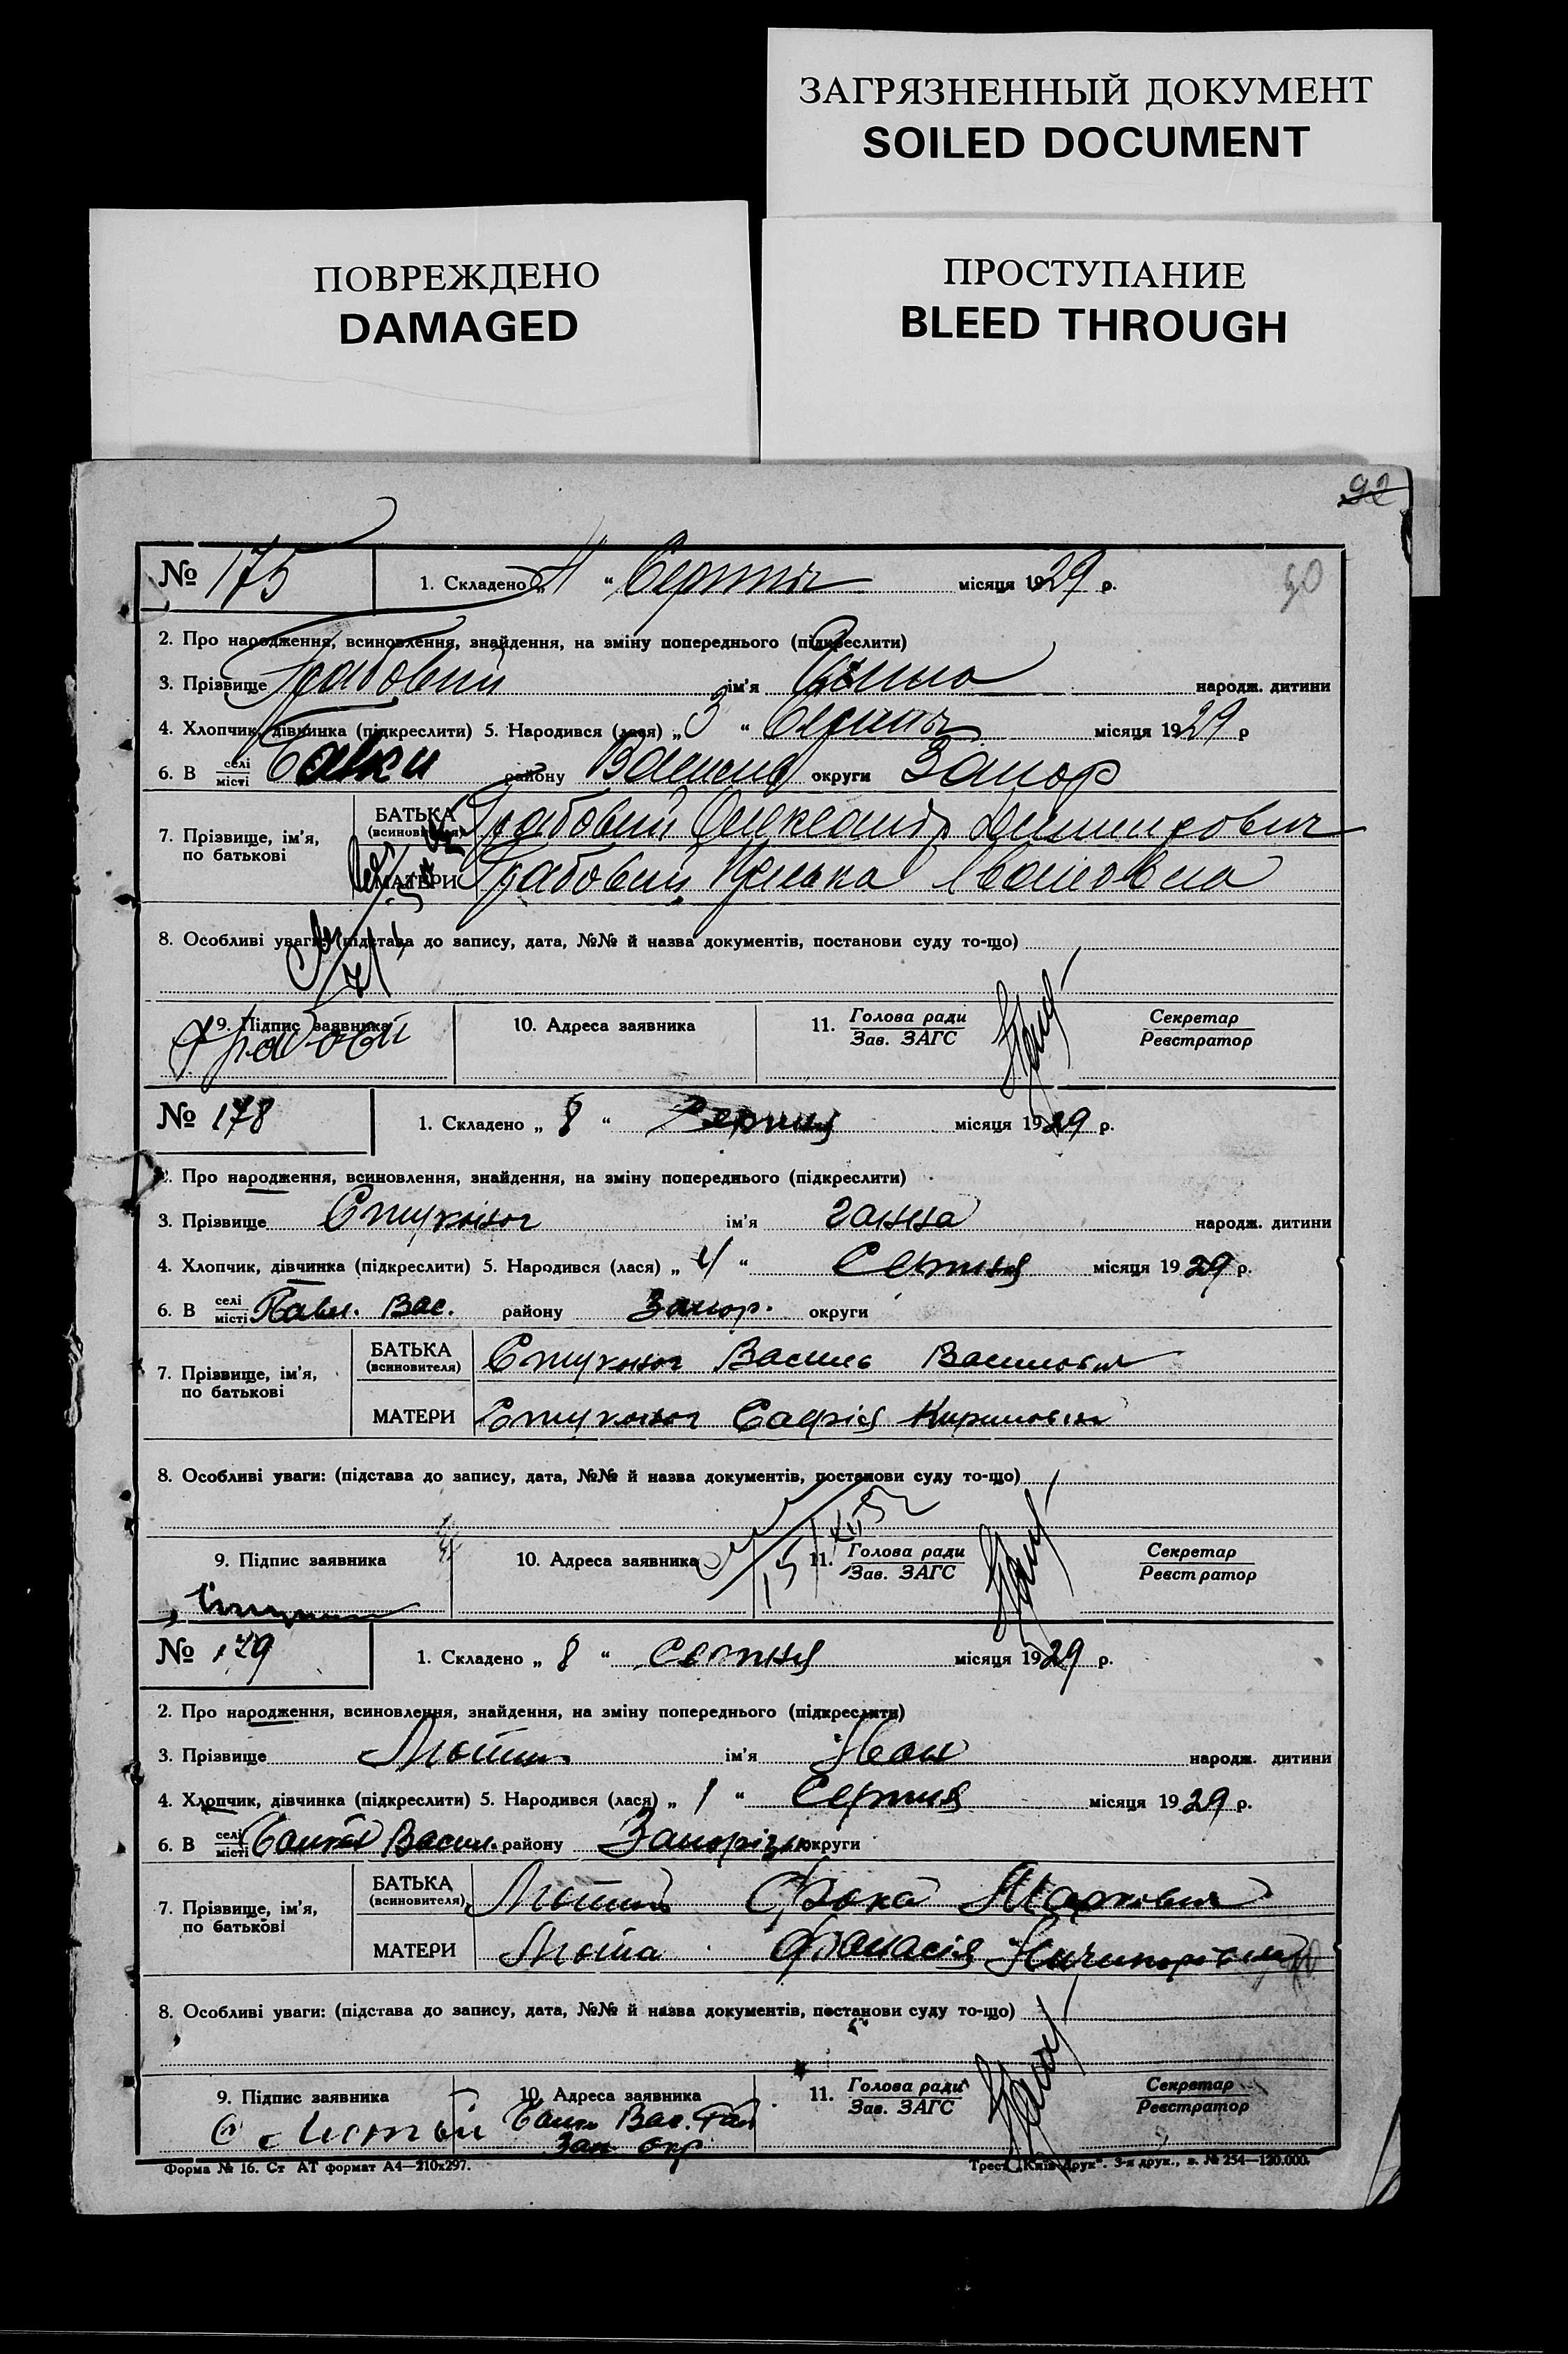 ЗАГРЯЗНЕННЫЙ ДОКУМЕНТ
SOILED DOCUMENT
ПОВРЕЖДЕНО
DAMAGED
ПРОСТУПАНИЕ
BLEED THROUGH
92
90
№ 175 1. Складено „ “ Серпня місяця 1929 р.
2. Про народження, всиновлення, знайдення, на зміну попереднього (підкреслити)
3. Прізвище Грабовий ім'я народж. дитини
4. Хлопчик, дівчинка (підкреслити) 5. Народився (лася) „ 3 “ Серпня місяця 1929 р
6. В селі місті Балки району Василів округи Запор
7. Прізвище, ім'я, по батькові
БАТЬКА (всиновителя) Грабовий Олександр
МАТЕРИ Грабовий Івановна
8. Особливі уваги: (підстава до запису, дата, №№ й назва документів, постанови суду то-що)
9. Підпис заявника 10. Адреса заявника 11. Голова ради Зав. ЗАГС Секретар Реєстратор
№ 178 1. Складено „ 8 “ Серпня місяця 1929 р.
2. Про народження, всиновлення, знайдення, на зміну попереднього (підкреслити)
3. Прізвище ім'я Ганна народж. дитини
4. Хлопчик, дівчинка (підкреслити) 5. Народився (лася) „ 4 “ Серпня місяця 1929 р.
6. В селі місті Вас. району Запор. округи
7. Прізвище, ім'я, по батькові
БАТЬКА (всиновителя) Василь Василович
МАТЕРИ Софія
8. Особливі уваги: (підстава до запису, дата, №№ й назва документів, постанови суду то-що)
9. Підпис заявника 10. Адреса заявника 11. Голова ради Зав. ЗАГС Секретар Реєстратор
№ 179 1. Складено „ 8 “ Серпня місяця 1929 р.
2. Про народження, всиновлення, знайдення, на зміну попереднього (підкреслити)
3. Прізвище Лютий ім'я Іван народж. дитини
4. Хлопчик, дівчинка (підкреслити) 5. Народився (лася) „ 1 “ Серпня місяця 1929 р.
6. В селі місті Васил. району Запорізьк округи
7. Прізвище, ім'я, по батькові
БАТЬКА (всиновителя) Лютий Фока Маркович
МАТЕРИ Люта
8. Особливі уваги: (підстава до запису, дата, №№ й назва документів, постанови суду то-що)
9. Підпис заявника 10. Адреса заявника 11. Голова ради Зав. ЗАГС Секретар Реєстратор
Балки Вас. Рай
Зап окр
Форма № 16. Ст АТ формат А4—210х297. Трест „Київ-Друк“. 3-я друк., з. № 254—120.000.